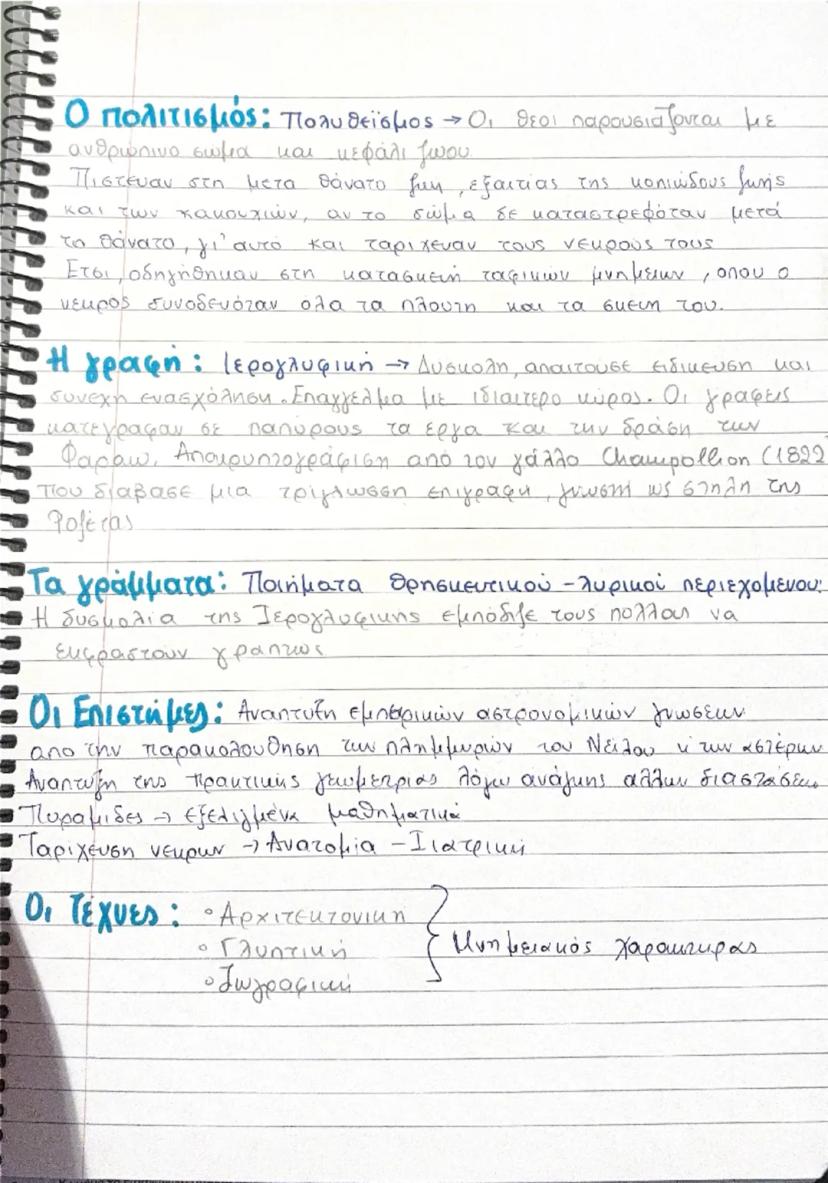 Ο πολιτισμός: Πολυθεϊσμος → Οι θεοι παρουσιαζονται με
ανθρωπινο σωμα και κεφάλι ζωου
Πιστευαν στη μετα θάνατο ζωη, εξαιτίας της κοπιώδους ζωής
και των κακουχιών, αν το σώμα δε καταστρεφόταν μετά
το θάνατο, γι' αυτό και ταριχευαν τους νεκρους τους
Ετσι, οδηγήθηκαν στη κατασκευή ταφικών μνημειων, οπου ο
νεκρος συνοδευόταν ολα τα πλουτη και τα σκευη του.
Η γραφή: Ιερογλυφική → Δυσκολη, απαιτουσε ειδικευση και
συνεχη ενασχόληση. Επαγγελμα με ιδιαιτερο κύρος. Οι γραφεις
κατεγραφαν σε παπυρους τα εργα και την δράση των
Φαραω. Αποκρυπτογράφιση από τον γάλλο Champollion (1822
που διαβασε μια τρίγλωσση επιγραφη, γνωστη ως στηλη της
Ροζέτας
Τα γράμματα: Ποιήματα θρησκευτικού - λυρικού περιεχομενου:
Η δυσκολία της Ιερογλυφικης εμπόδιζε τους πολλους να
εκφραστουν γραπτως
Οι Επιστήμες: Αναπτυξη εμπειρικών αστρονομικών γνωσεων
απο την παρακολουθηση των πλημμυρών του Νείλου κ των αστέρων
Αναπτυξη της πρακτικης γεωμετριας λόγω ανάγκης αλλων διαστάσεων
Πυραμιδες → εξελιγμένα μαθηματικά
Ταριχευση νεκρων → Ανατομία - Ιατρική
Οι Τέχνες: ° Αρχιτεκτονικη
° Γλυπτική } Μνημειακός χαρακτηρας
° Ζωγραφική